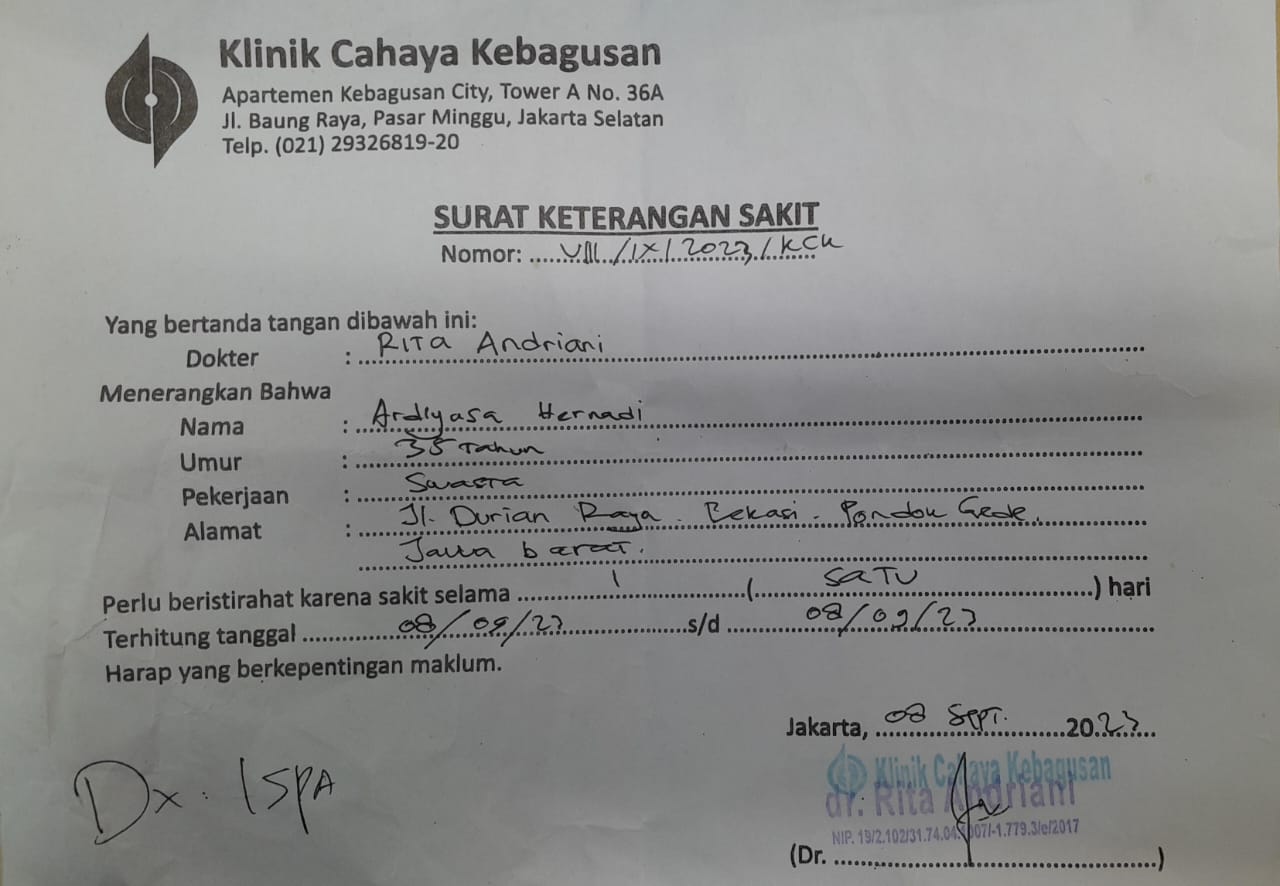 Klinik Cahaya Kebagusan
Apartemen Kebagusan City, Tower A No. 36A
Jl. Baung Raya, Pasar Minggu, Jakarta Selatan
Telp. (021) 29326819-20
SURAT KETERANGAN SAKIT
Nomor: VIII / IX / 2023 / KCK
Yang bertanda tangan dibawah ini:
Dokter : Rita Andriani
Menerangkan Bahwa
Nama : Ardiyasa Hernadi
Umur : 35 Tahun
Pekerjaan : Swasta
Alamat : Jl. Durian Raya. Bekasi. Pondok Gede.
Jawa barat.
Perlu beristirahat karena sakit selama 1 ( SATU ) hari
Terhitung tanggal 08/09/23 s/d 08/09/23
Harap yang berkepentingan maklum.
Jakarta, 08 Sept. 2023
Dx. ISPA
Klinik Cahaya Kebagusan
dr. Rita Andriani
NIP. 19/2.102/31.74.04. /-1.779.3/e/2017
(Dr. )